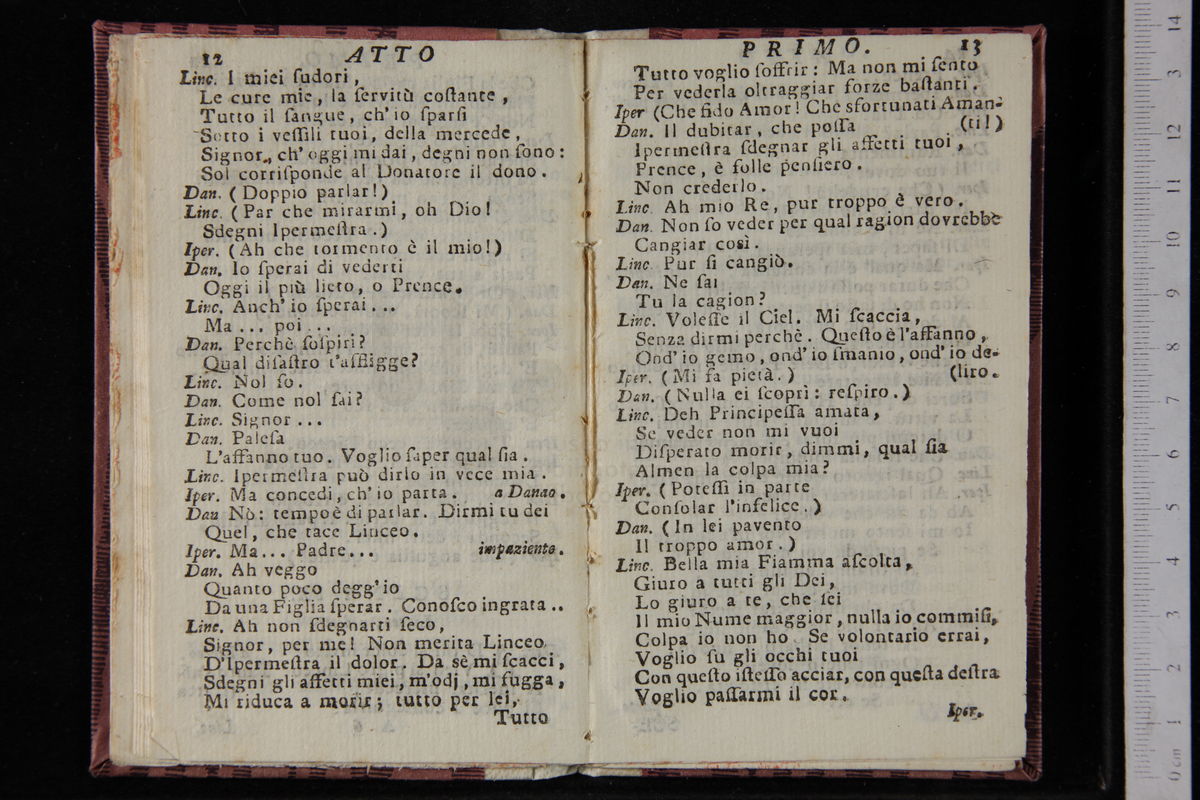 12 ATTO
Linc. I miei ſudori,
Le cure mie, la ſervitù coſtante,
Tutto il ſangue, ch'io ſparſi
Sotto i veſſili tuoi, della mercede,
Signor, ch'oggi mi dai, degni non ſono:
Sol corriſponde al Donatore il dono.
Dan. (Doppio parlar!)
Linc. (Par che mirarmi, oh Dio!
Sdegni Ipermeſtra.)
Iper. (Ah che tormento è il mio!)
Dan. Io ſperai di vederti
Oggi il più lieto, o Prence.
Linc. Anch'io ſperai...
Ma... poi...
Dan. Perchè ſoſpiri?
Qual diſaſtro t'affligge?
Linc. Nol ſo.
Dan. Come nol ſai?
Linc. Signor...
Dan. Paleſa
L'affanno tuo. Voglio ſaper qual ſia.
Linc. Ipermeſtra può dirlo in vece mia.
Iper. Ma concedi, ch'io parta. a Danao.
Dan Nò: tempo è di parlar. Dirmi tu dei
Quel, che tace Linceo.
Iper. Ma... Padre... impaziente.
Dan. Ah veggo
Quanto poco degg'io
Da una Figlia ſperar. Conoſco ingrata..
Linc. Ah non ſdegnarti ſeco,
Signor, per me! Non merita Linceo
D'Ipermeſtra il dolor. Da sè mi ſcacci,
Sdegni gli affetti miei, m'odj, mi fugga,
Mi riduca a morir; tutto per lei,
Tutto
PRIMO. 13
Tutto voglio ſoffrir: Ma non mi ſento
Per vederla oltraggiar forze baſtanti.
Iper (Che fido Amor! Che sfortunati Aman-
Dan. Il dubitar, che poſſa (ti!)
Ipermeſtra ſdegnar gli affetti tuoi,
Prence, è folle penſiero.
Non crederlo.
Linc. Ah mio Re, pur troppo è vero.
Dan. Non ſo veder per qual ragion dovrebbe
Cangiar così.
Linc. Pur ſi cangiò.
Dan. Ne ſai
Tu la cagion?
Linc. Voleſſe il Ciel. Mi ſcaccia,
Senza dirmi perchè. Queſto è l'affanno,
Ond'io gemo, ond'io ſmanio, ond'io de-
Iper. (Mi fa pietà.) (liro.
Dan. (Nulla ei ſcoprì: reſpiro.)
Linc. Deh Principeſſa amata,
Se veder non mi vuoi
Diſperato morir, dimmi, qual ſia
Almen la colpa mia?
Iper. (Poteſſi in parte
Conſolar l'infelice.)
Dan. (In lei pavento
Il troppo amor.)
Linc. Bella mia Fiamma aſcolta,
Giuro a tutti gli Dei,
Lo giuro a te, che ſei
Il mio Nume maggior, nulla io commiſi,
Colpa io non ho. Se volontario errai,
Voglio ſu gli occhi tuoi
Con queſto iſteſſo acciar, con queſta deſtra
Voglio paſſarmi il cor.
Iper.